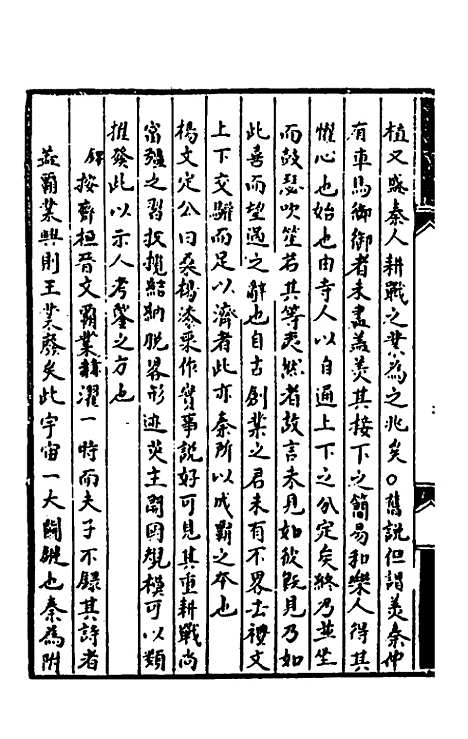 植又єs秦人耕戰之業爲之兆矣○舊説但謂美秦仲
有車馬御御者未盡蓋美其接下之簡易和樂人得其
懽心也始也由寺人以自通上下之分定矣終乃並坐
而鼓瑟吹笙若其等夷然者故言未見如彼既見乃如
此喜而望遇之辭也自古創業之君未有不畧去禮文
上下交驩而足以濟者此亦秦所以成霸之本也
楊文定公曰桑楊漆栗作實事説好可見其重耕戰尚
富强之習扳攬結納脱畧形迹英主開國規模可以類
推發此以示人考鑒之方也
按齊桓晉文霸業赫濯一時而夫子不録其詩者
蓋霸業興則王業廢矣此宇宙一大關鍵也秦爲附